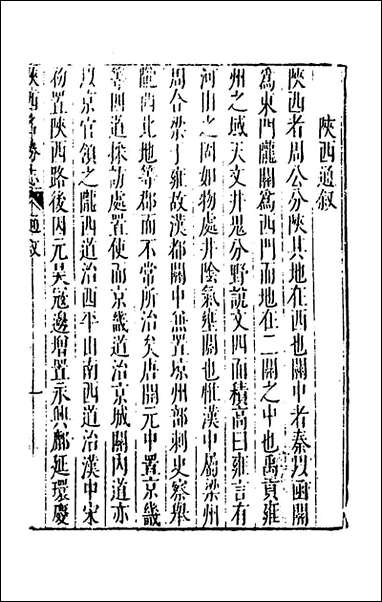 陝西通叙
陝西者周公分陝其地在西也關中者秦以凾關
爲東門隴關爲西門而地在二關之中也禹貢雍
州之域天文井鬼分野說文四面積高曰雍言有
河山之固如物處井陰氣壅閼也惟漢中屬梁州
周合梁于雍故漢都關中無置京州部刺史察舉
隴西北地等郡而不常所治矣唐開元中置京畿
等四道採訪處置使而京畿道治京城關內道亦
以京官領之隴西道治西平山南西道治漢中宋
初置陝西路後因元昊寇邊增置永興鄜延環慶
陝西名勝志 通叙 一